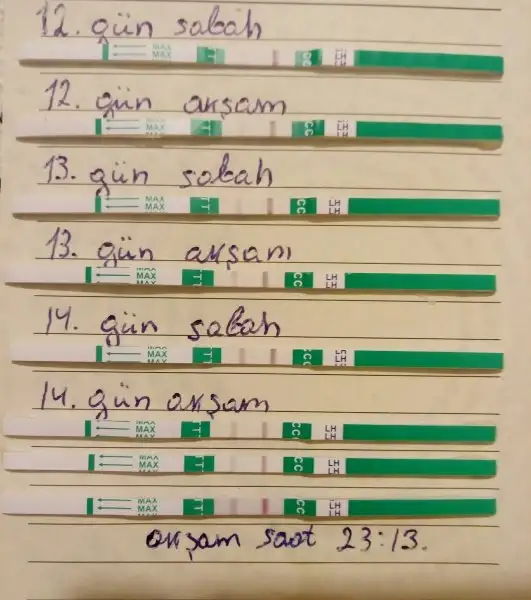 12. gün sabah
MAX MAX TT CC LH LH
12. gün akşam
MAX MAX TT CC LH LH
13. gün sabah
MAX MAX TT CC LH LH
13. gün akşam
MAX MAX TT CC LH LH
14. gün sabah
MAX MAX TT CC LH LH
14. gün akşam
MAX MAX TT CC LH LH
MAX MAX TT CC LH LH
MAX MAX TT CC LH LH
akşam saat 23:13.